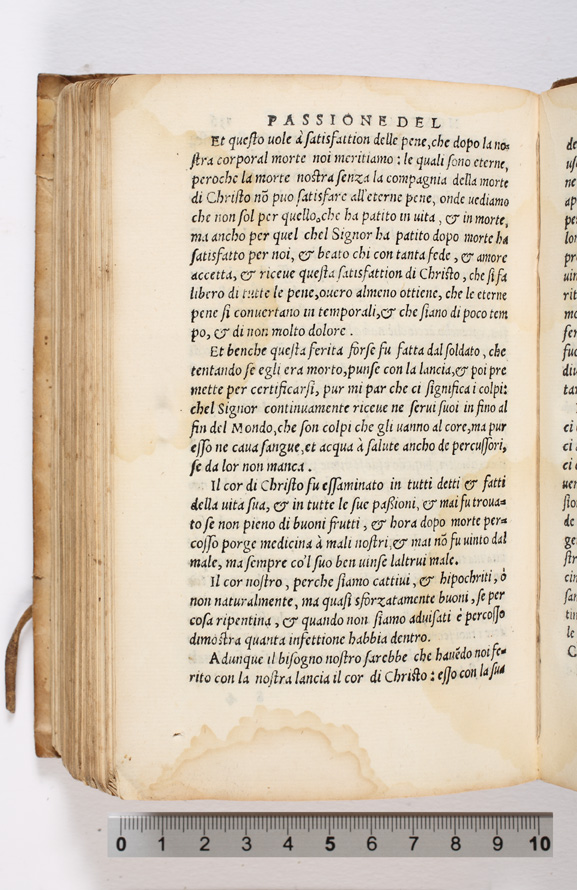 PASSIONE DEL
Et queſto uole à ſatisfattion delle pene, che dopo la no=
ſtra corporal morte noi meritiamo: le quali ſono eterne,
peroche la morte noſtra ſenza la compagnia della morte
di Chriſto nõ puo ſatisfare all'eterne pene, onde uediamo
che non ſol per quello, che ha patito in uita, & in morte,
ma ancho per quel chel Signor ha patito dopo morte ha
ſatisfatto per noi, & beato chi con tanta fede, & amore
accetta, & riceue queſta ſatisfattion di Chriſto, che ſi fa
libero di tutte le pene, ouero almeno ottiene, che le eterne
pene ſi conuertano in temporali, & che ſiano di poco tem
po, & di non molto dolore.
Et benche queſta ferita forſe fu fatta dal ſoldato, che
tentando ſe egli era morto, punſe con la lancia, & poi pre
mette per certificarſi, pur mi par che ci ſignifica i colpi:
chel Signor continuamente riceue ne ſerui ſuoi in fino al
fin del Mondo, che ſon colpi che gli uanno al core, ma pur
eſſo ne caua ſangue, et acqua à ſalute ancho de percuſſori,
ſe da lor non manca.
Il cor di Chriſto fu eſſaminato in tutti detti & fatti
della uita ſua, & in tutte le ſue paſſioni, & mai fu troua=
to ſe non pieno di buoni frutti, & hora dopo morte per=
coſſo porge medicina à mali noſtri, & mai nõ fu uinto dal
male, ma ſempre co'l ſuo ben uinſe laltrui male.
Il cor noſtro, perche ſiamo cattiui, & hipochriti, ò
non naturalmente, ma quaſi sforzatamente buoni, ſe per
coſa ripentina, & quando non ſiamo aduiſati è percoſſo
dimoſtra quanta infettione habbia dentro.
Adunque il biſogno noſtro ſarebbe che hauẽdo noi fe=
rito con la noſtra lancia il cor di Chriſto: eſſo con la ſua
0 1 2 3 4 5 6 7 8 9 10